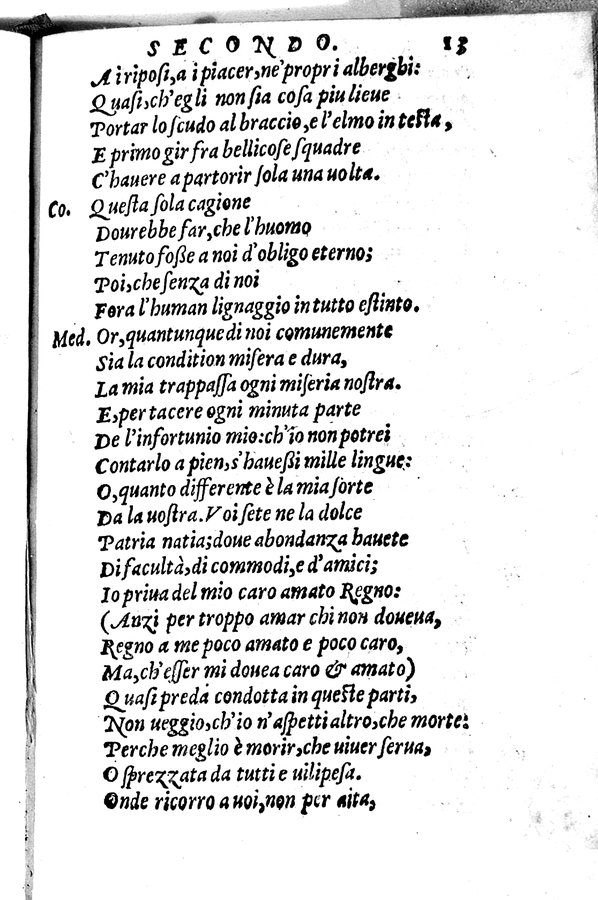 SECONDO. 13
A i riposi, a i piacer, ne' propri alberghi:
Quasi, ch'egli non sia cosa piu lieue
Portar lo scudo al braccio, e l'elmo in testa,
E primo gir fra bellicose squadre
C'hauere a partorir sola una uolta.
Co. Questa sola cagione
Dourebbe far, che l'huomo
Tenuto fosse a noi d'obligo eterno;
Poi, che senza di noi
Fora l'human lignaggio in tutto estinto.
Med. Or, quantunque di noi comunemente
Sia la condition misera e dura,
La mia trappassa ogni miseria nostra.
E, per tacere ogni minuta parte
De l'infortunio mio: ch'io non potrei
Contarlo a pien, s'hauessi mille lingue:
O, quanto differente è la mia sorte
Da la uostra. Voi sete ne la dolce
Patria natia; doue abondanza hauete
Di facultà, di commodi, e d'amici;
Io priua del mio caro amato Regno:
(Anzi per troppo amar chi non doueua,
Regno a me poco amato e poco caro,
Ma, ch'esser mi douea caro & amato)
Quasi preda condotta in queste parti,
Non ueggio, ch'io n'aspetti altro, che morte:
Perche meglio è morir, che uiuer serua,
O sprezzata da tutti e uilipesa.
Onde ricorro a uoi, non per aita,